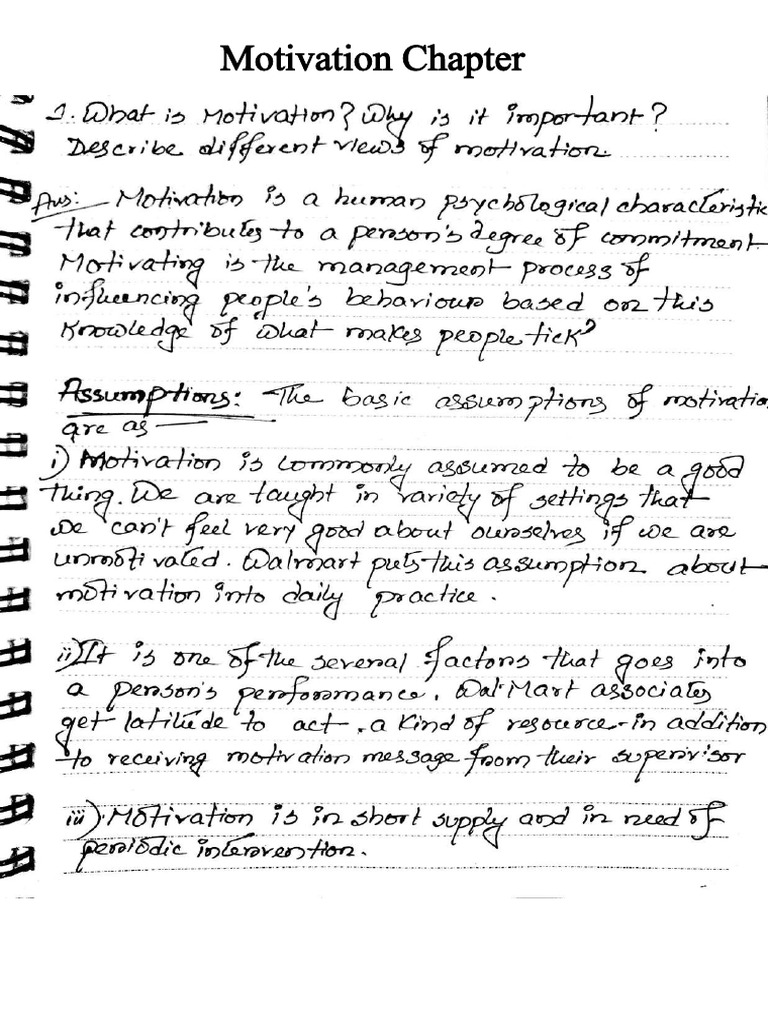 Motivation Chapter
1. What is Motivation? Why is it important?
Describe different views of motivation.
Ans: Motivation is a human psychological characteristic
that contributes to a person's degree of commitment.
Motivating is the management process of
influencing people's behaviour based on this
knowledge of "what makes people tick"
Assumptions: The basic assumptions of motivation
are as —
i) Motivation is commonly assumed to be a good
thing. We are taught in variety of settings that
we can't feel very good about ourselves if we are
unmotivated. Walmart puts this assumption about
motivation into daily practice.
ii) It is one of the several factors that goes into
a person's performance. Wal-Mart associates
get latitude to act, a kind of resource-in addition
to receiving motivation message from their supervisor
iii). Motivation is in short supply and in need of
periodic intervention.